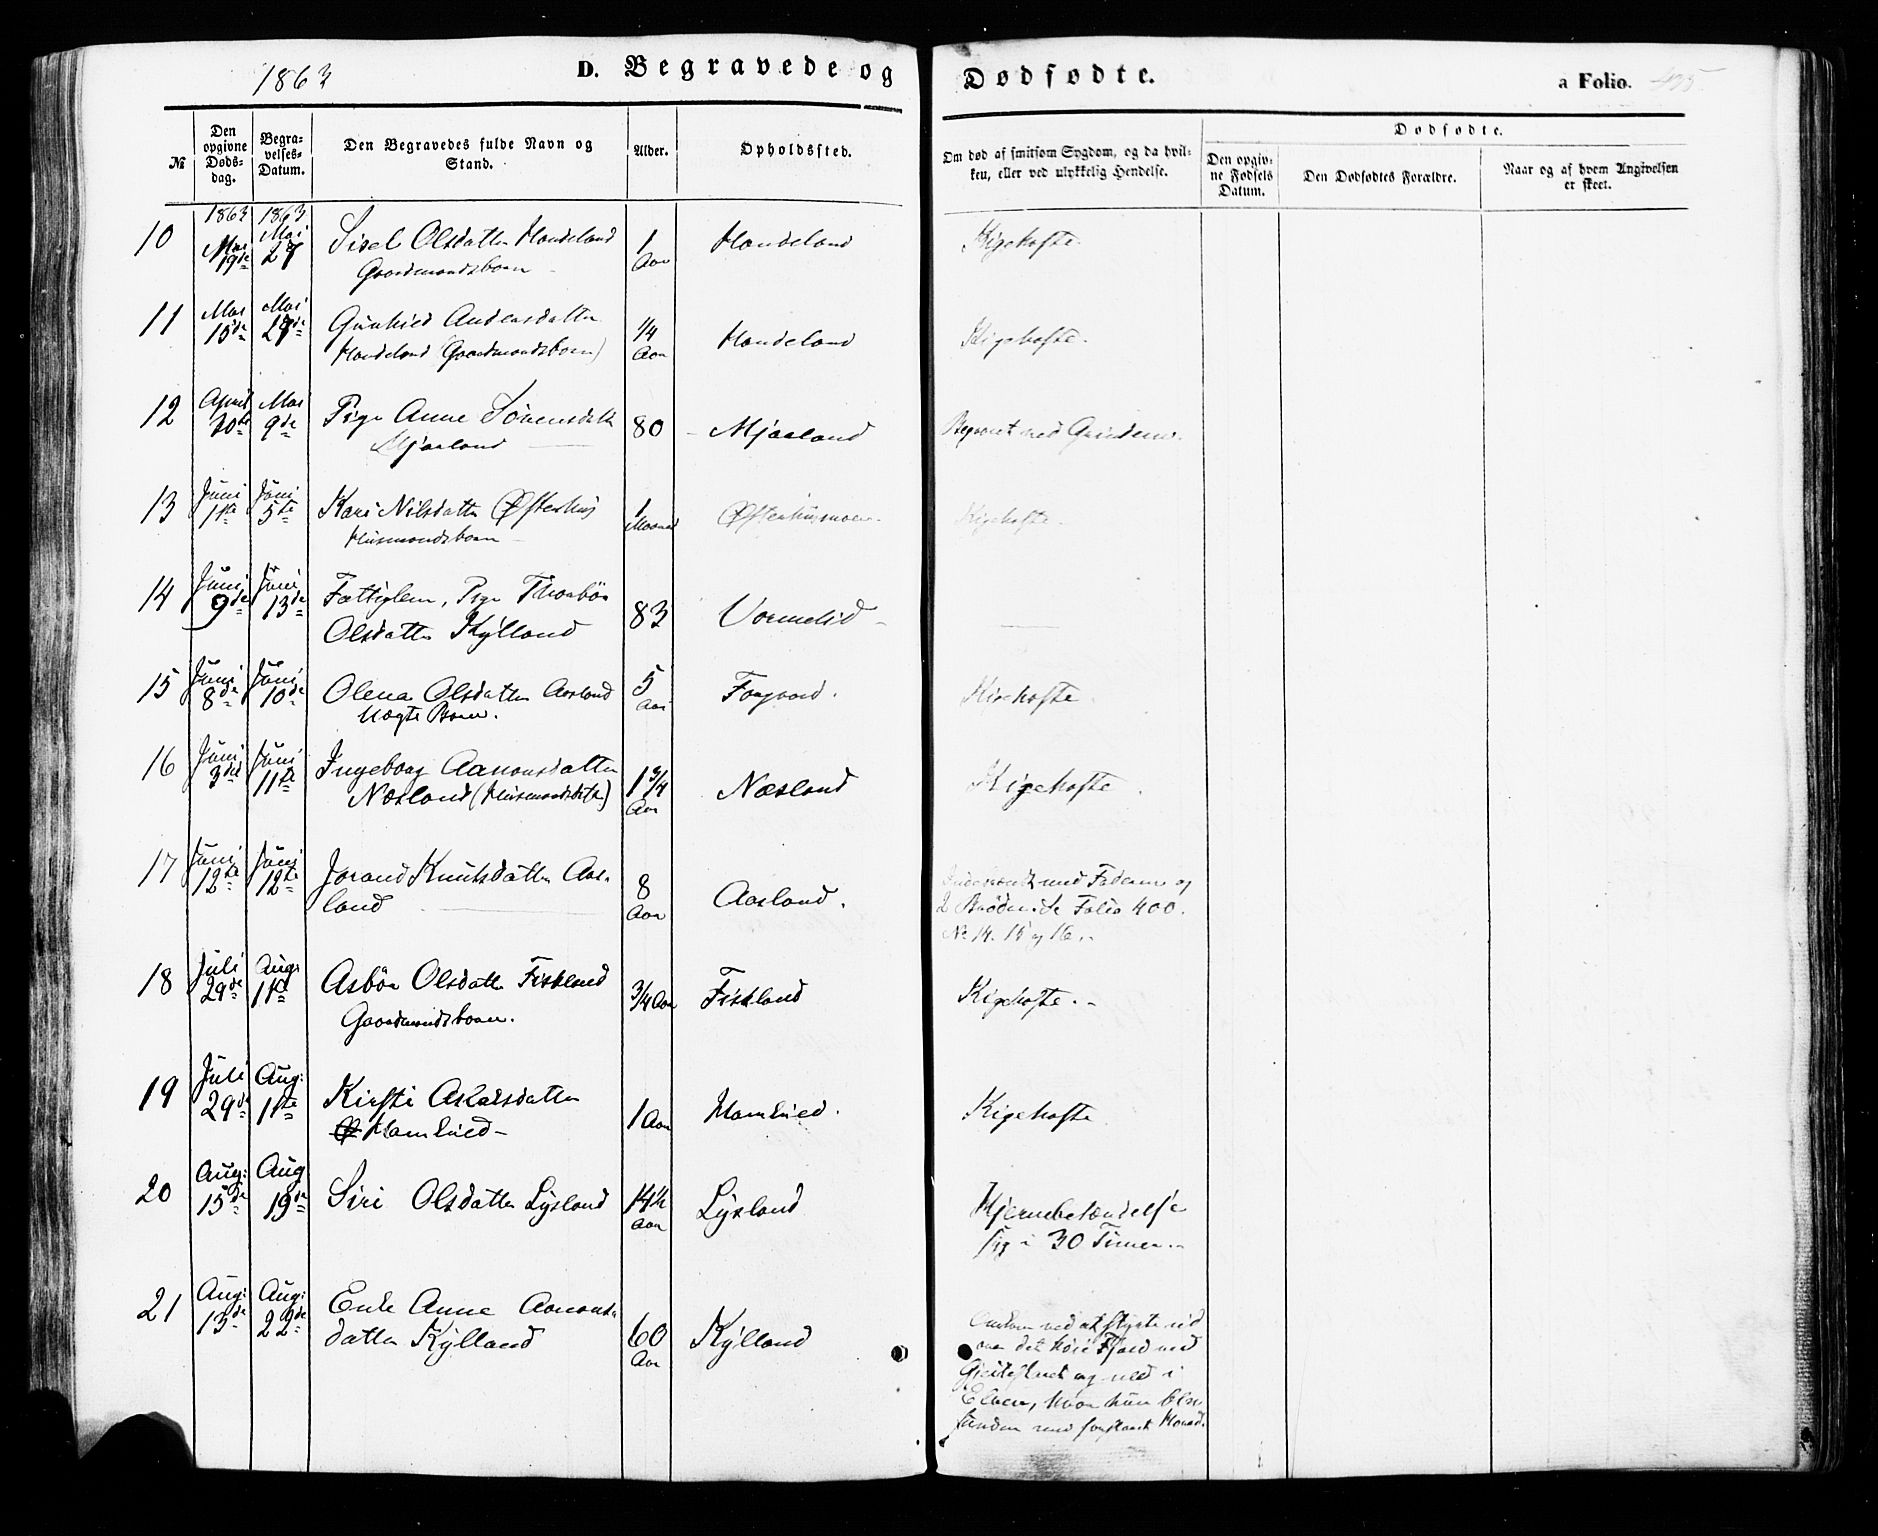 1863
D. Begravede og
Dødfødte.
a Folio. 405
№
Den opgivne Døds-dag.
Begra-velses-Datum.
Den Begravedes fulde Navn og Stand.
Alder.
Opholdssted.
Om død af smitsom Sygdom, og da hvil-
ken, eller ved ulykkelig Hendelse.
Dødfødte.
Den opgiv-ne Fødsels Datum.
Den Dødfødtes Forældre.
Naar og af hvem Angivelsen er skeet.
1863 1863
10 Mai 19de Mai 27 Sisel Olsdatter Haadeland 1 Aar Haadeland Kigehoste.
Gaardmandsbarn
11 Mai 15de Mai 27de Gunhild Andersdatter 1/4 Aar Haadeland Kigehoste.
Haadeland (Gaardmandsbarn)
12 April 30te Mai 9de Pige Anne Sørensdatter 80 Mjaaland Begravet ved
Mjaaland
13 Juni 1ste Juni 5te Kari Nilsdatter Øfterhus 1 Maaned Øfterhusmoen. Kigehoste.
Husmandsbarn
14 Juni 9de Juni 13de Fattiglem, Pige Thorbør 83 Vormelid
Olsdatter Kylland
15 Juni 8de Juni 10de Olena Olsdatter Aasland 5 Aar Kigehoste.
Uægte Barn.
16 Juni 3die Juni 11te Ingeborg Aanonsdatter 1 3/4 Aar Næsland Kigehoste.
Næsland
17 Juni 12te Juni 12te Jorand Knutsdatter Aas- 8 Aar Aasland. med Faderen og
land 2 Brødre, se Folio 400.
No 14. 15 og 16.
18 Juli 29de Aug: 1ste Asbør Olsdatter Fiskland 3/4 Aar Fiskland Kigehoste.
Gaardmandsbarn.
19 Juli 29de Aug: 1ste Kirsti Aslaksdatter 1 Aar Kigehoste
20 Aug: 15de Aug 19de Siri Olsdatter Lysland 14 1/2 Aar Lysland Hjernebetændelse
syg i 30 Timer.
21 Aug: 13de Aug: 22de Enke Anne Aanons- 60 Aar Kylland Omkom ved at styrte ud
datter Kylland over det høie Fjeld ved
og ned i
Elven, hvor hun blev
funden med